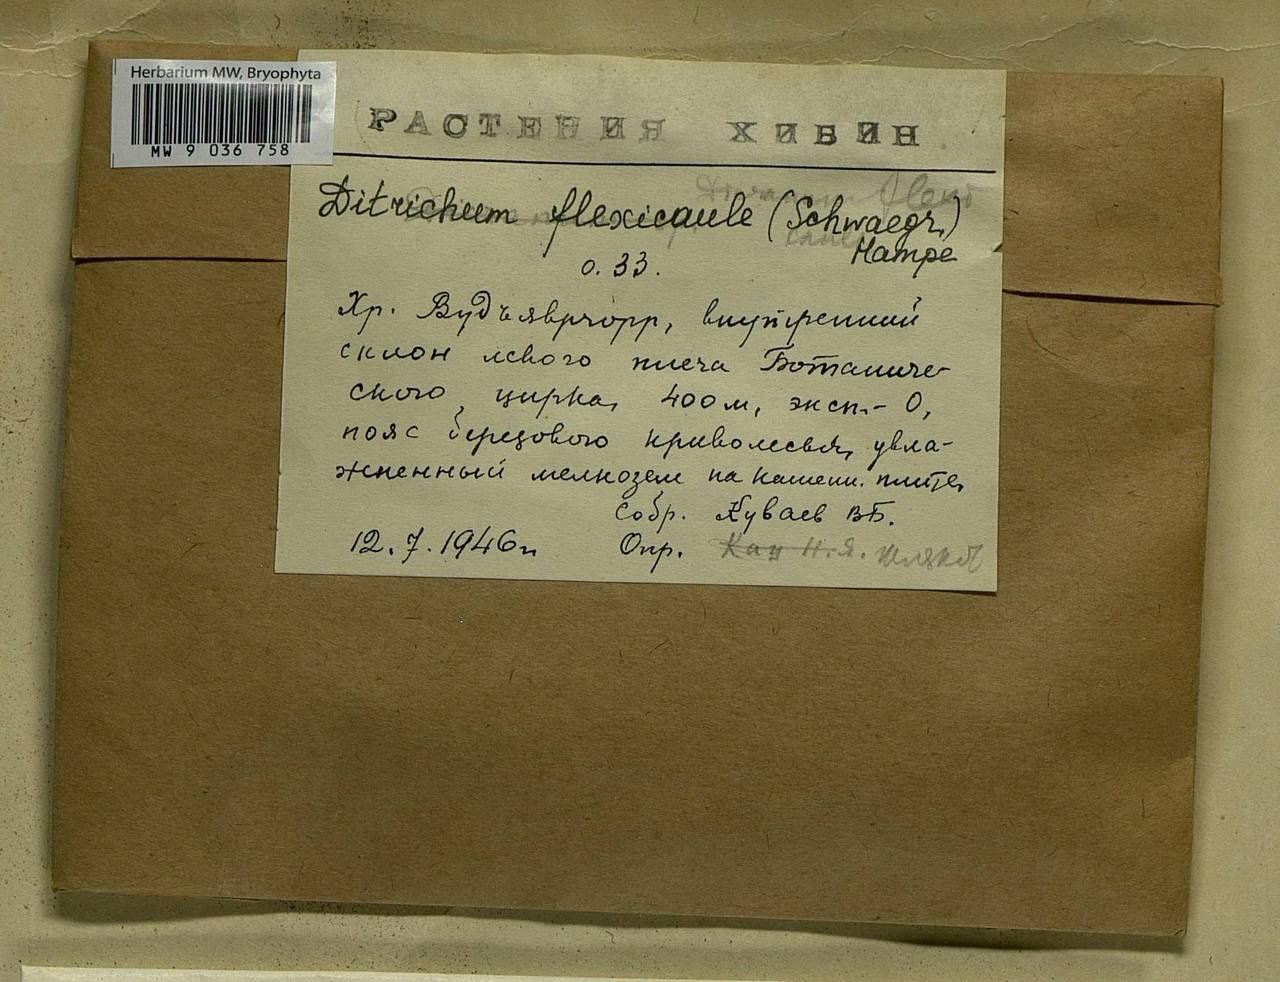 Herbarium MW, Bryophyta
MW 9 036 758
РАСТЕНИЯ ХИБИН
Ditrichum flexicaule (Schwaegr.)
Hampe
о. 33.
Хр. Вудъяврчорр, внутренний
склон левого плеча Ботаниче-
ского цирка, 400 м, эксп.- О,
пояс березового криволесья, увла-
жненный мелкозем на каменн. плите,
Собр. Куваев В.Б.
12.7.1946г. Опр. Кац Н.Я. Шляков